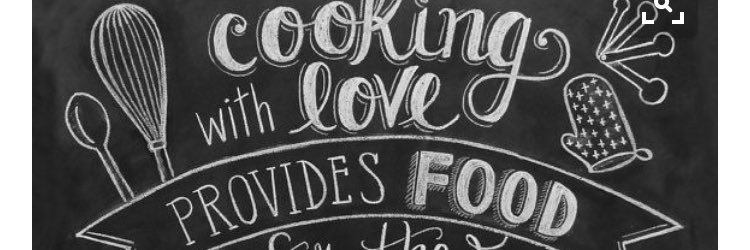 cooking
with love
PROVIDES FOOD
for the